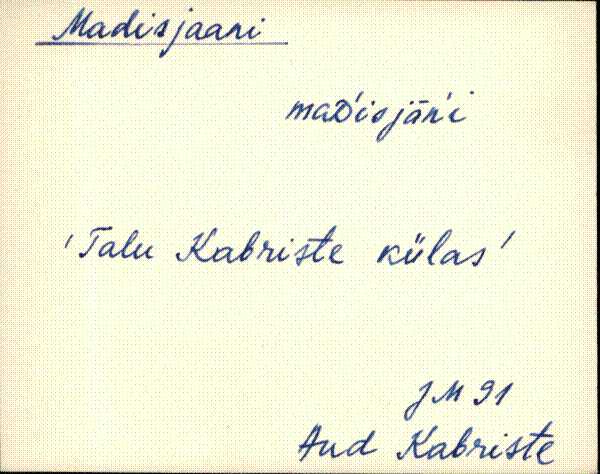 Madisjaani
maD́isjāńi
'Talu Kabriste külas'
JM 91
Aud Kabriste